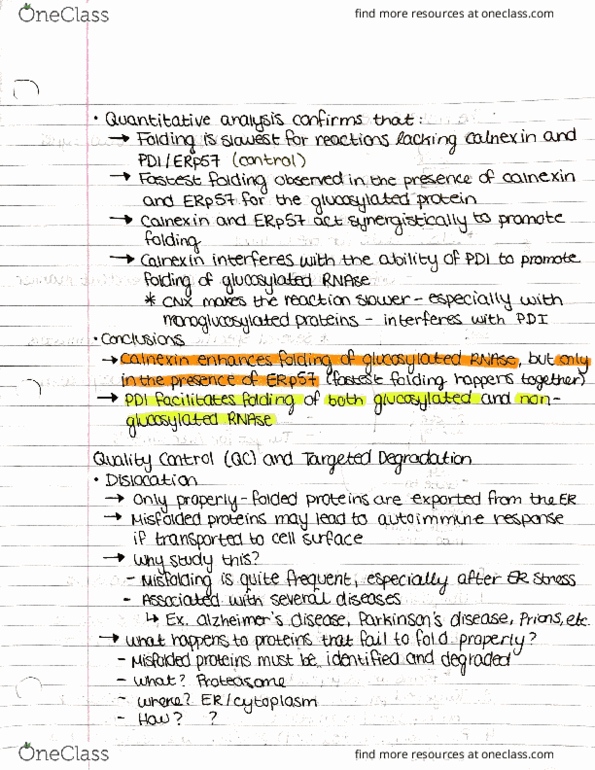 OneClass
find more resources at oneclass.com
• Quantitative analysis confirms that:
→ Folding is slowest for reactions lacking calnexin and
PDI/ERp57 (control)
→ Fastest folding observed in the presence of calnexin
and ERp57 for the glucosylated protein
→ Calnexin and ERp57 act synergistically to promote
folding
→ Calnexin interferes with the ability of PDI to promote
folding of glucosylated RNAse
* CNX makes the reaction slower - especially with
monoglucosylated proteins - interferes with PDI
• Conclusions
→ Calnexin enhances folding of glucosylated RNAse, but only
in the presence of ERp57 (fastest folding happens together)
→ PDI facilitates folding of both glucosylated and non-
glucosylated RNAse
Quality Control (QC) and Targeted Degradation
• Dislocation
→ Only properly-folded proteins are exported from the ER
→ Misfolded proteins may lead to autoimmune response
if transported to cell surface
→ Why study this?
- Misfolding is quite frequent, especially after ER stress
- Associated with several diseases
↳ Ex. Alzheimer's disease, Parkinson's disease, Prions, etc.
→ What happens to proteins that fail to fold properly?
- Misfolded proteins must be identified and degraded
- What? Proteasome
- Where? ER/cytoplasm
- How? ?
OneClass
find more resources at oneclass.com